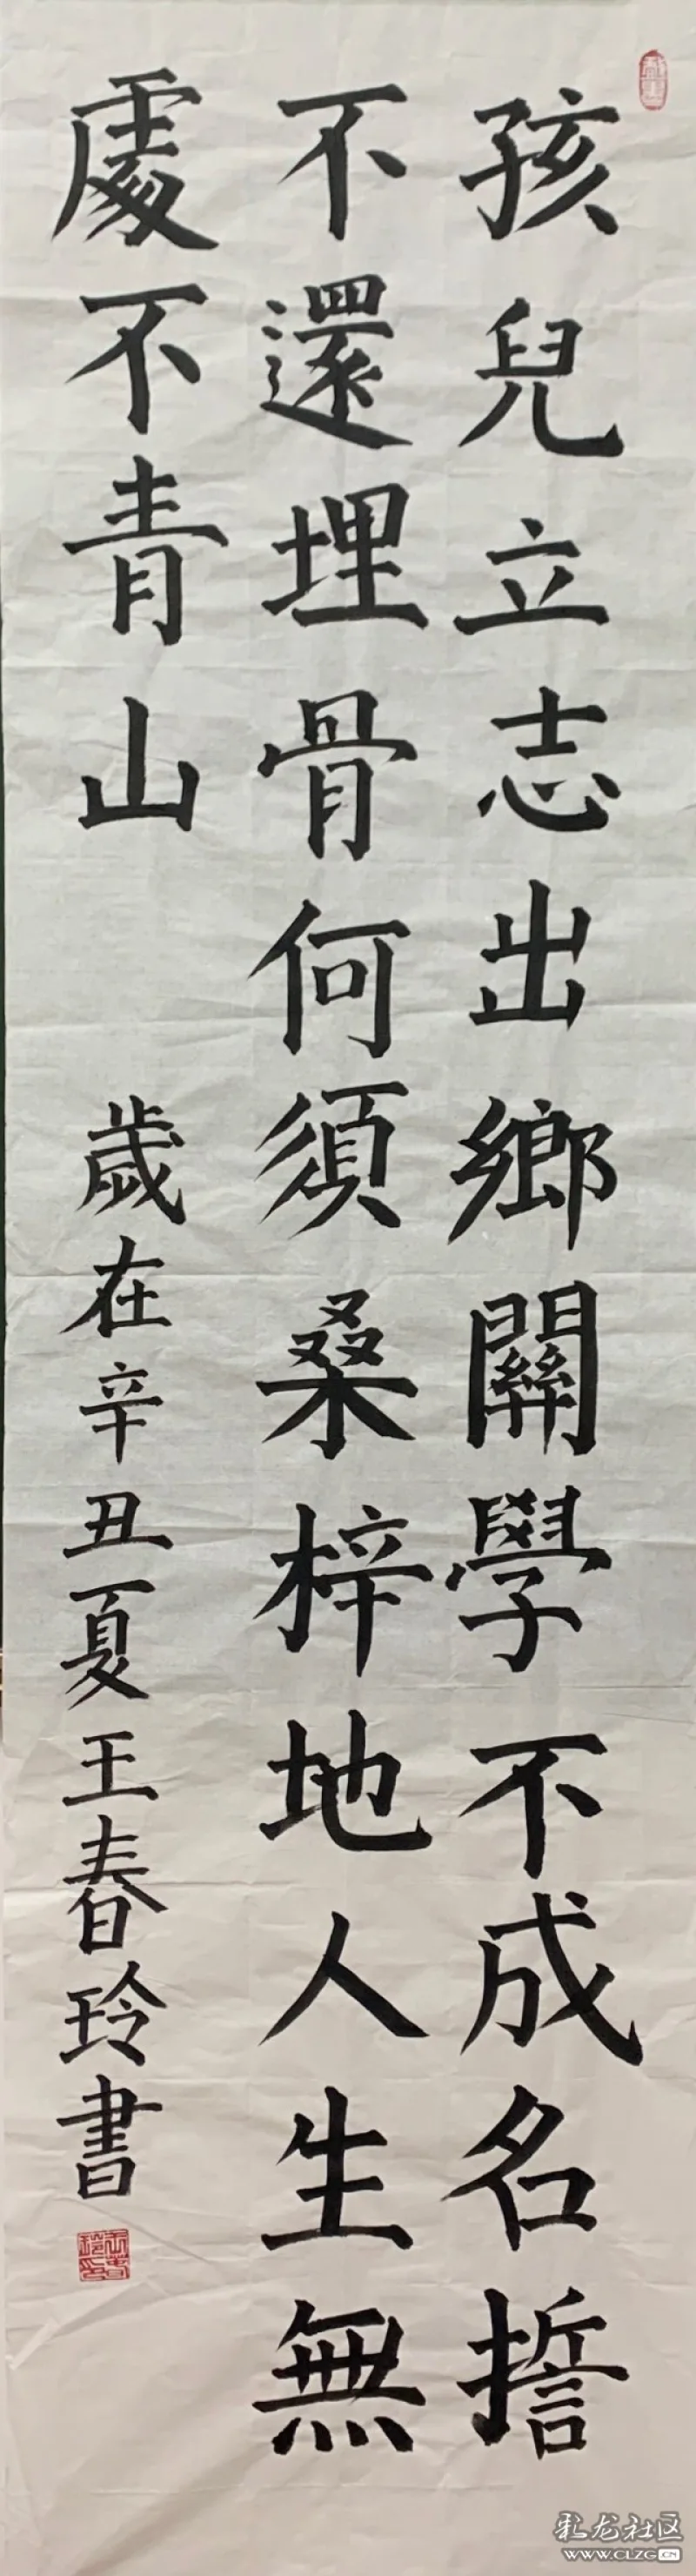 孩兒立志出鄉關學不成名誓
不還埋骨何須桑梓地人生無
處不青山
歲在辛丑夏王春玲書
彩龙社区
WWW.CLZG.CN